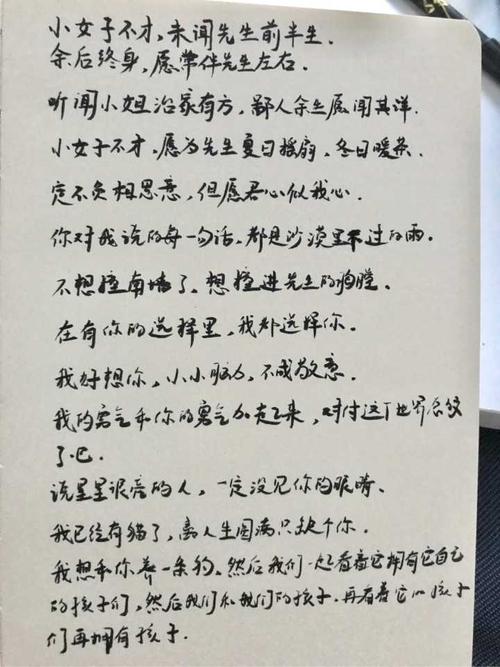 小女子不才，未闻先生前半生．
余后终身，愿常伴先生左右．
听闻小姐治家有方，鄙人余生愿闻其详．
小女子不才．愿为先生夏日摇扇，冬日暖茶．
定不负相思意，但愿君心似我心．
你对我说的每一句话．都是沙漠里下过的雨．
不想撞南墙了．想撞进先生的胸膛．
在有你的选择里，我都选择你．
我好想你，小小 ，不成敬意．
我的勇气和你的勇气加起来，对付这个世界总够
了吧．
说星星很亮的人，一定没见你的眼睛．
我已经有猫了，离人生圆满只缺个你．
我想和你养一条狗．然后我们一起看着它拥有它自己
的孩子们，然后我们和我们的孩子．再看着它的孩子
们再拥有孩子．